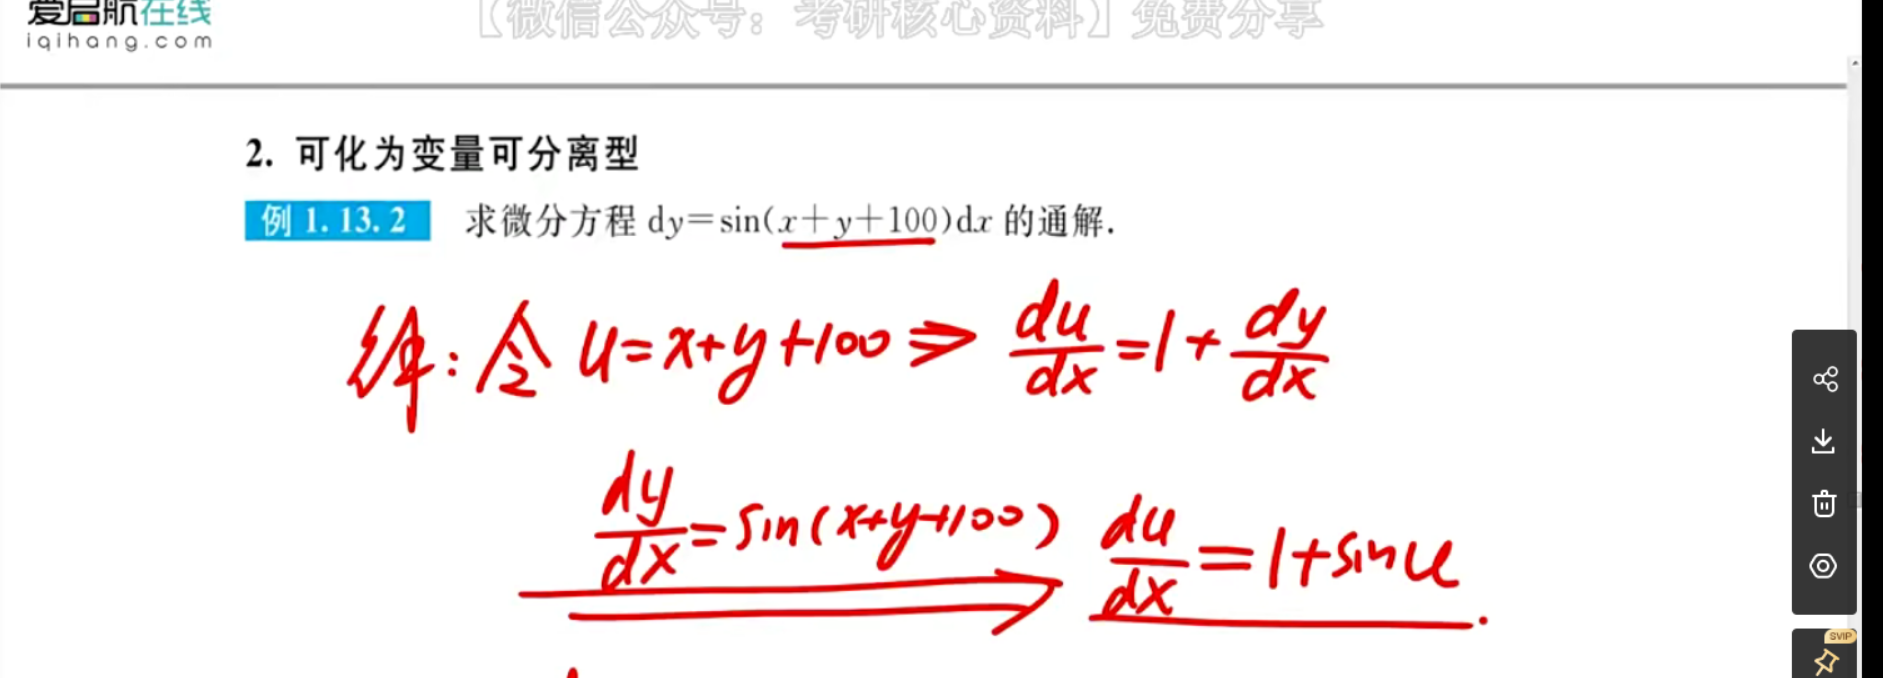 爱启航在线
iqihang.com
【微信公众号：考研核心资料】免费分享
2. 可化为变量可分离型
例 1.13.2 求微分方程 dy=sin(x+y+100)dx 的通解.
解:令 u=x+y+100 ⇒ du/dx=1+dy/dx
dy/dx=sin(x+y+100) ⇒ du/dx=1+sinu.
SVIP